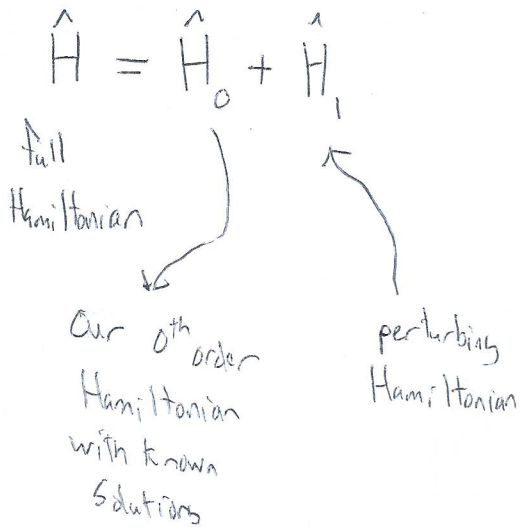 Ĥ = Ĥ₀ + Ĥ₁
full
Hamiltonian
Our 0th order
Hamiltonian
with known
solutions
perturbing
Hamiltonian